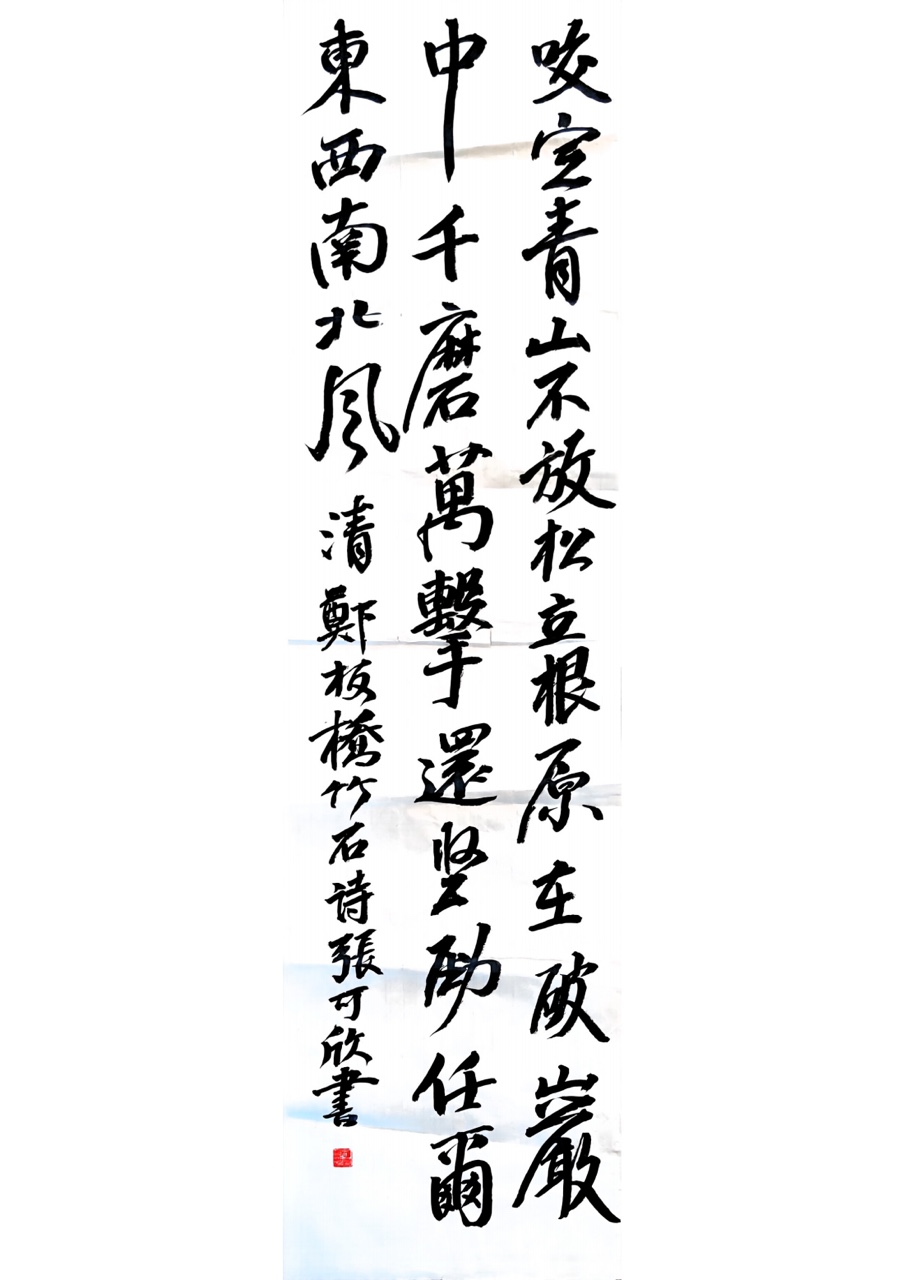 咬定青山不放松立根原在破巖
中千磨萬擊還坚勁任爾
東西南北風 清鄭板橋竹石詩張可欣書